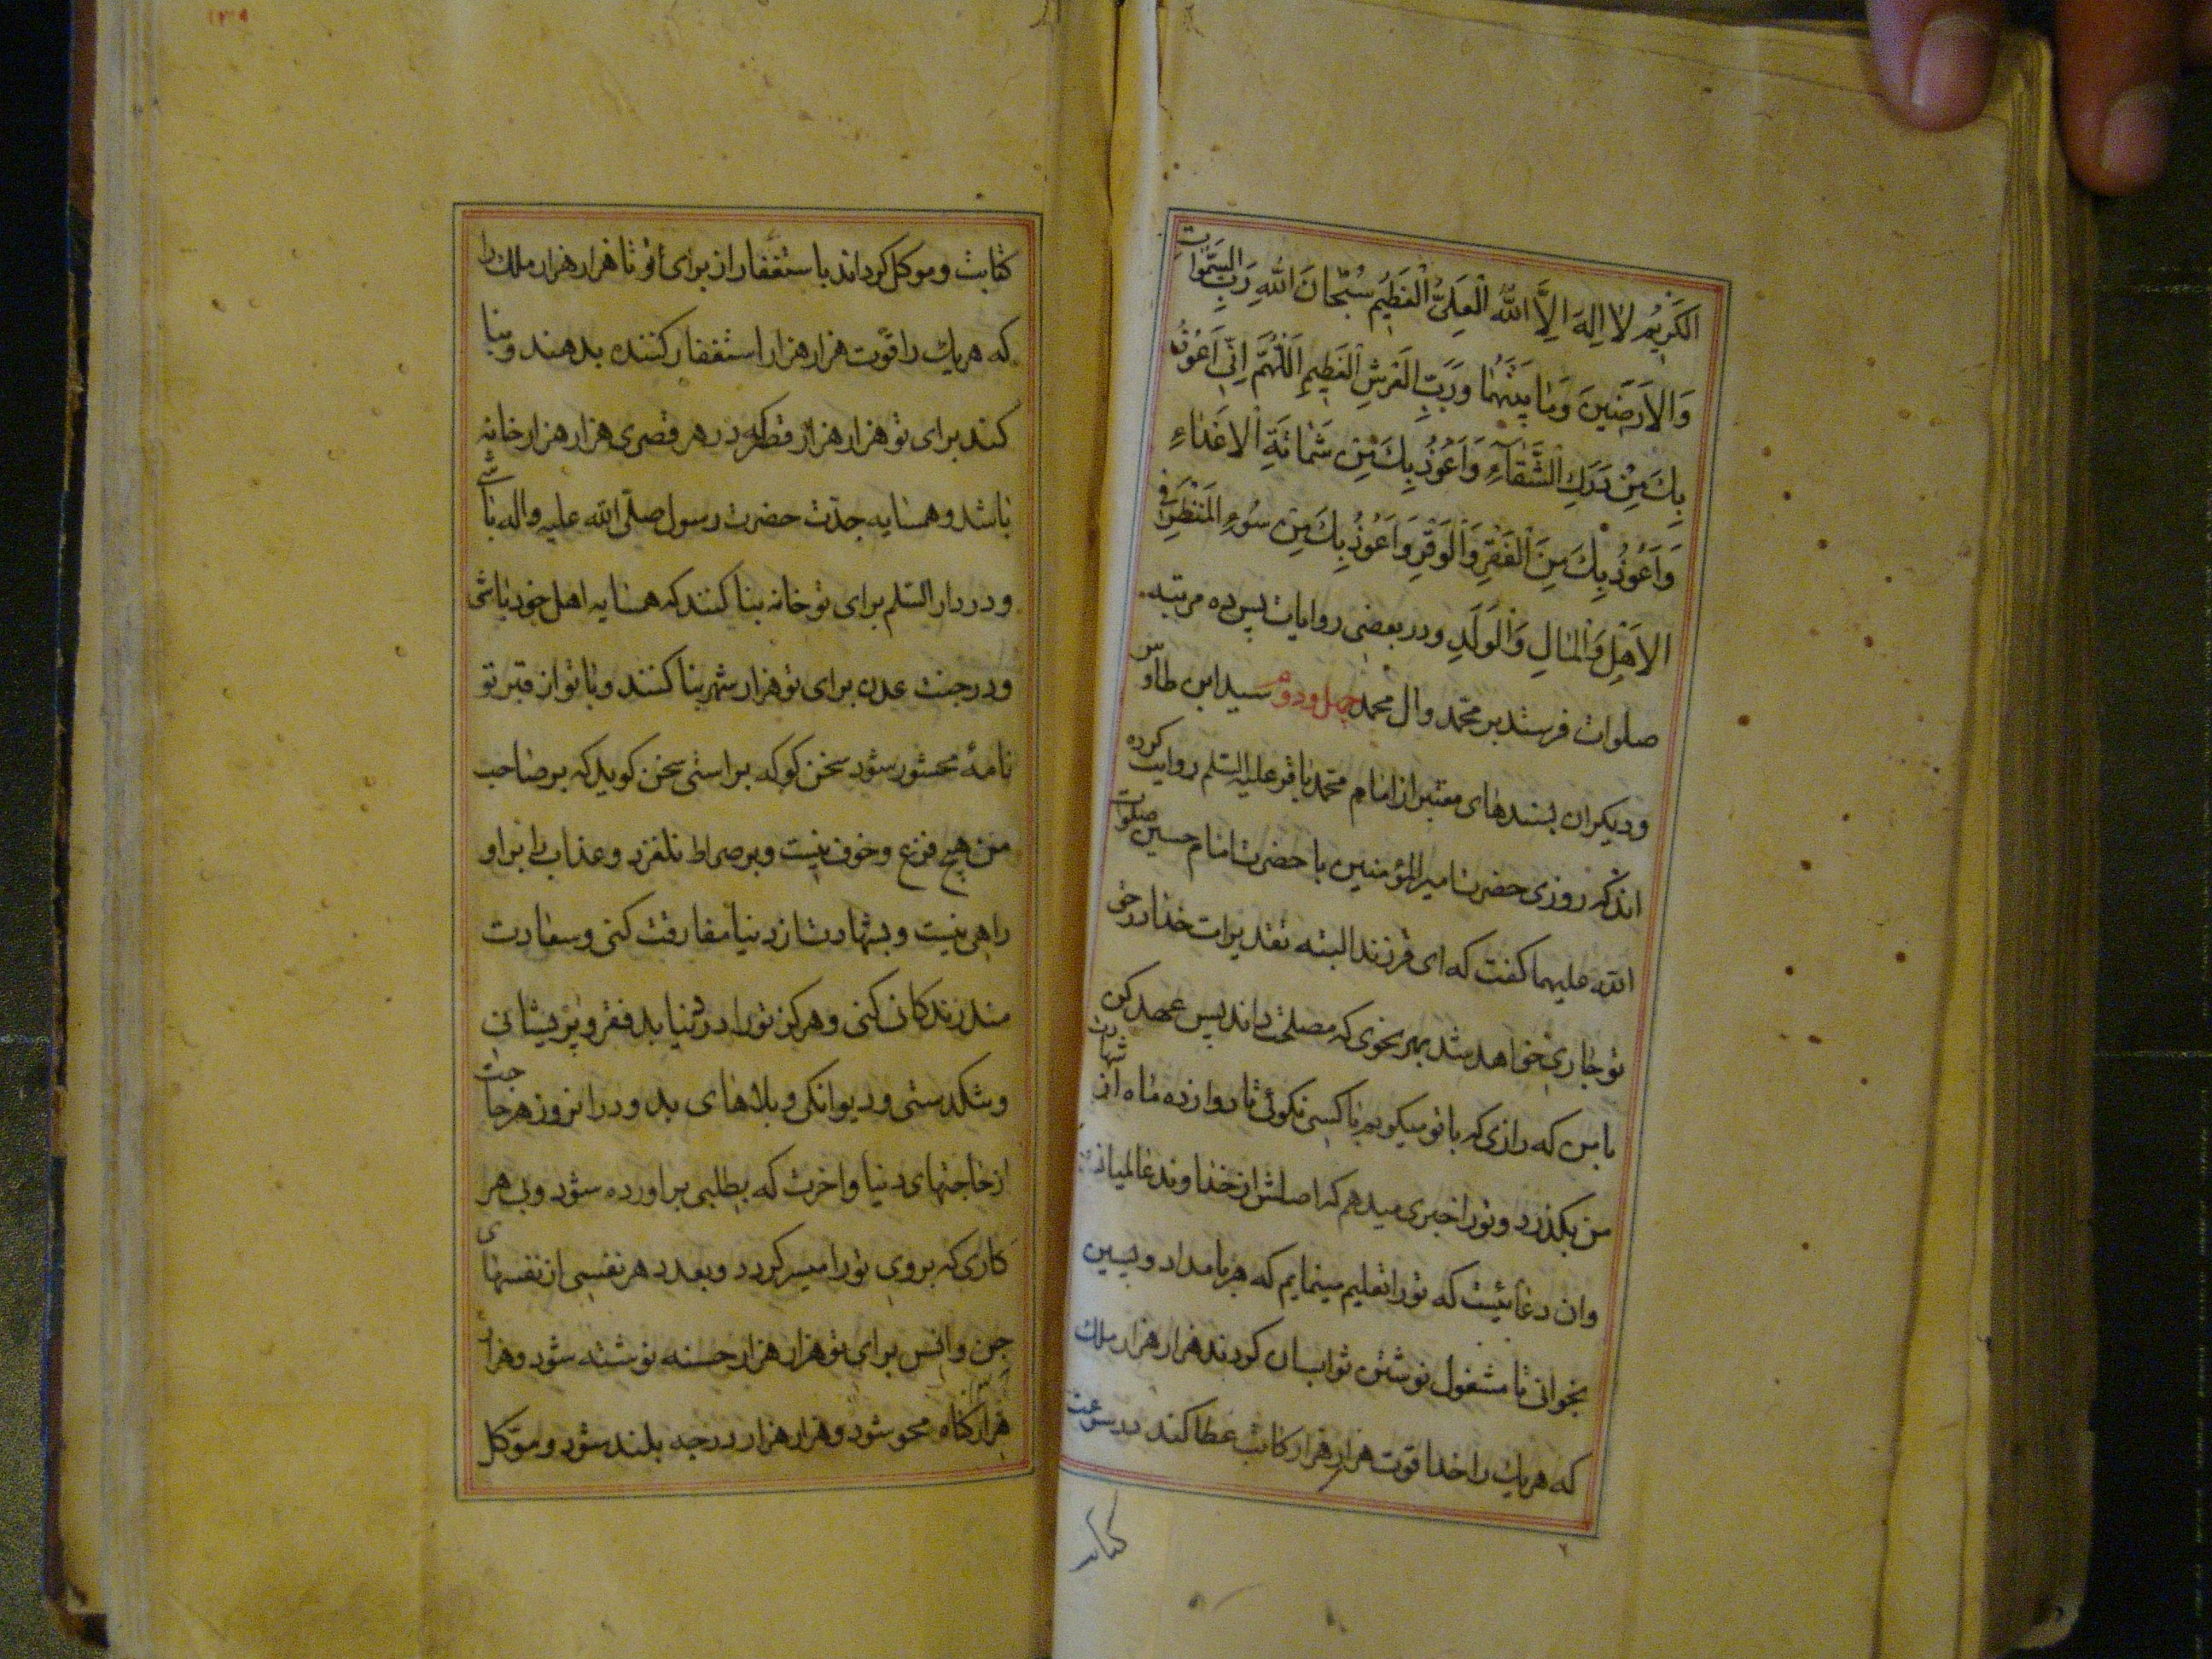 الكَريمُ لا اِلهَ اِلاَّ اللّهُ العَلىُّ العَظيمُ سُبْحانَ اللهِ رَبِّ السَّمَواتِ
وَالاَرَضَينَ وَمَا بَيْنَهُما وَرَبِّ العَرْشِ العَظيمِ اَللّهُمَّ اِنّى اَعُوذُ
بِكَ مِنْ دَرَكِ الشَّقآءِ وَاَعُوذُ بِكَ مِنْ شَماتَةِ الاَعْداءِ
وَاَعُوذُ بِكَ مِنَ الفَقْرِ وَالوَقْرِ وَاَعُوذُ بِكَ مِنْ سُوءِ المَنْظَرِ فى
الاَهْلِ وَالمَالِ وَالوَلَدِ ودر بعضى روايات پس ده مرتبه
صلوات فرستد بر محمّد وال محمد چهل ودوم سيد ابن طاوس
وديكران بسندهاى معتبر از امام محمّد باقر عليه السّلم روايت كرده
اند كه روزى حضرت امير المؤمنين با حضرت امام حسين صلوات
الله عليهما كفت كه اى فرزند البته تقديرات خدا در حق
تو جارى خواهد شد بهر نحوى كه مصلحت داند پس عهد كن
با من كه رازى كه با تو ميكويم با كسى نكوئى تا دوازده ماه از شهادت
من بكذرد وتورا خبرى ميدهم كه اصلش از خداوند عالميانست
وان دعائيست كه تورا تعليم مينمايم كه هر بامداد وپسين
بخوانى تا مشغول نوشتن ثواب ان كردند هزار هزار ملك
كه هر يك را خدا قوت هزار هزار كاتب عطا كند در سرعت
كتابت
كتابت وموكل كرداند باستغفار از براى تو تا هزار هزار ملك را
كه هر يك را قوّت هزار هزار استغفار كننده بدهند وبنا
كند براى تو هزار هزار قصر كه در هر قصرى هزار هزار خانه
باشد وهمسايه جدّت حضرت رسول صلّى الله عليه واله باشى
ودر دار السّلم براى تو خانه بنا كنند كه همسايه اهل خود باشى
ودر جنت عدن براى تو هزار شهر بنا كنند وبا تو از قبر تو
نامۀ محشور شود سخن كو كه براستى سخن كويد كه بر صاحب
من هيچ فزع وخوف نيست وبر صراط نلغزد وعذاب را بر او
راهى نيست وبشهادت از دنيا مفارقت كنى وسعادت
مند زندكانى كنى وهركز تورا در دنيا بد فقر وپريشانى
وتنكدستى وديوانكى وبلاهاى بد ودر انروز هر حاجت
از حاجتهاى دنيا واخرت كه بطلبى براورده شود وبى هر
كارى كه بروى تورا ميسر كردد وبعدد هر نفسى از نفسهاى
جن وانس براى تو هزار هزار حسنه نوشته شود وهزار
هزار كناه محو شود وهزار هزار درجه بلند شود وموّكل